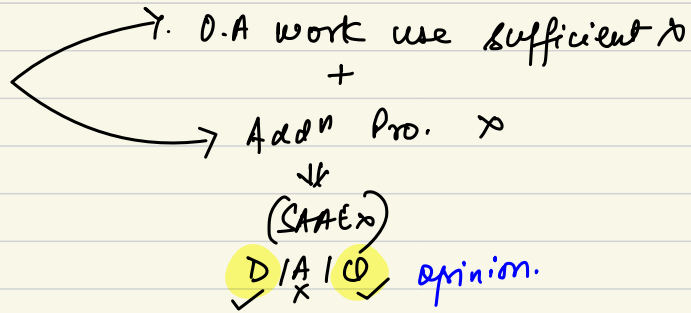 1. O.A work use sufficient x
+
Addn Pro. x
⇓
(SAAEx)
D / A / Q opinion.
✓ x ✓